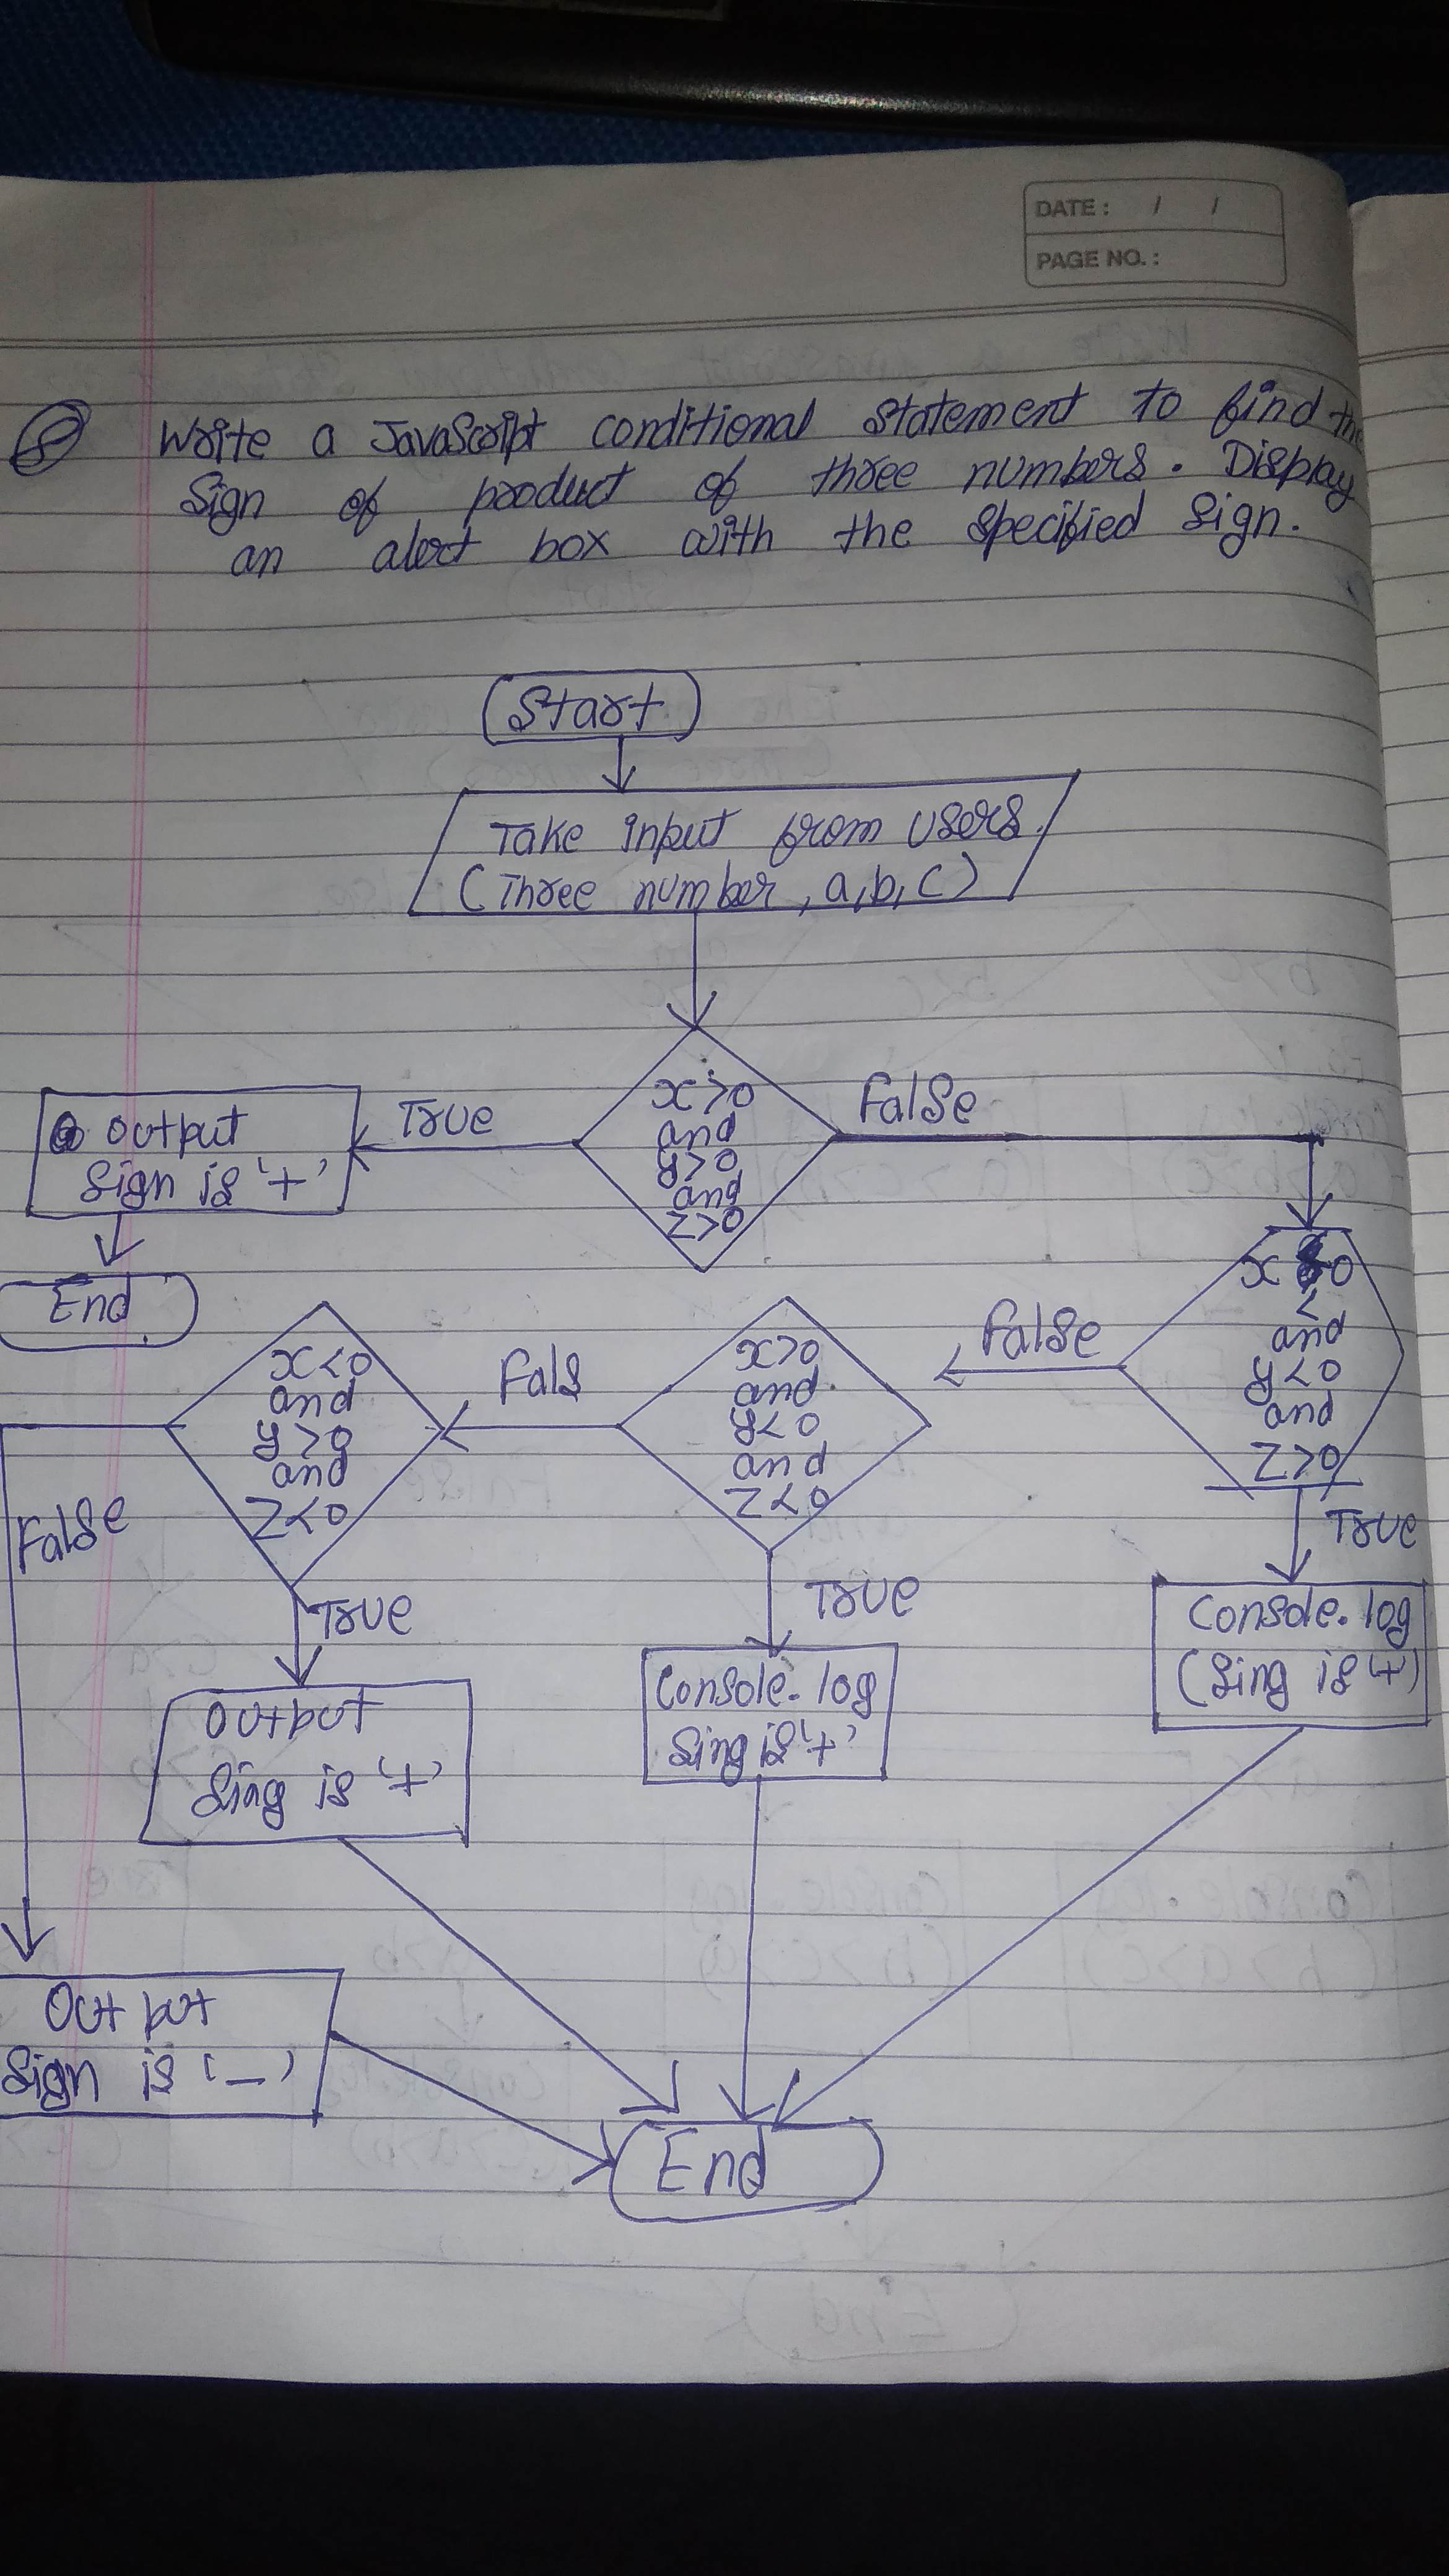 DATE : / /
PAGE NO. :
Write a JavaScript conditional statement to find the
Sign of product of three numbers. Display
an alert box with the specified sign.
Start
Take input from users.
(Three number, a, b, c)
x>0
and
y>0
and
z>0
True
False
output
Sign is '+'
End
x 0
<
and
y<0
and
z>0
False
True
Console.log
(Sing is '+')
x>0
and
y<0
and
z<0
Fals
True
Console.log
Sing is '+'
x<0
and
y>0
and
z<0
False
True
output
Sing is '+'
Output
Sign is '-'
End